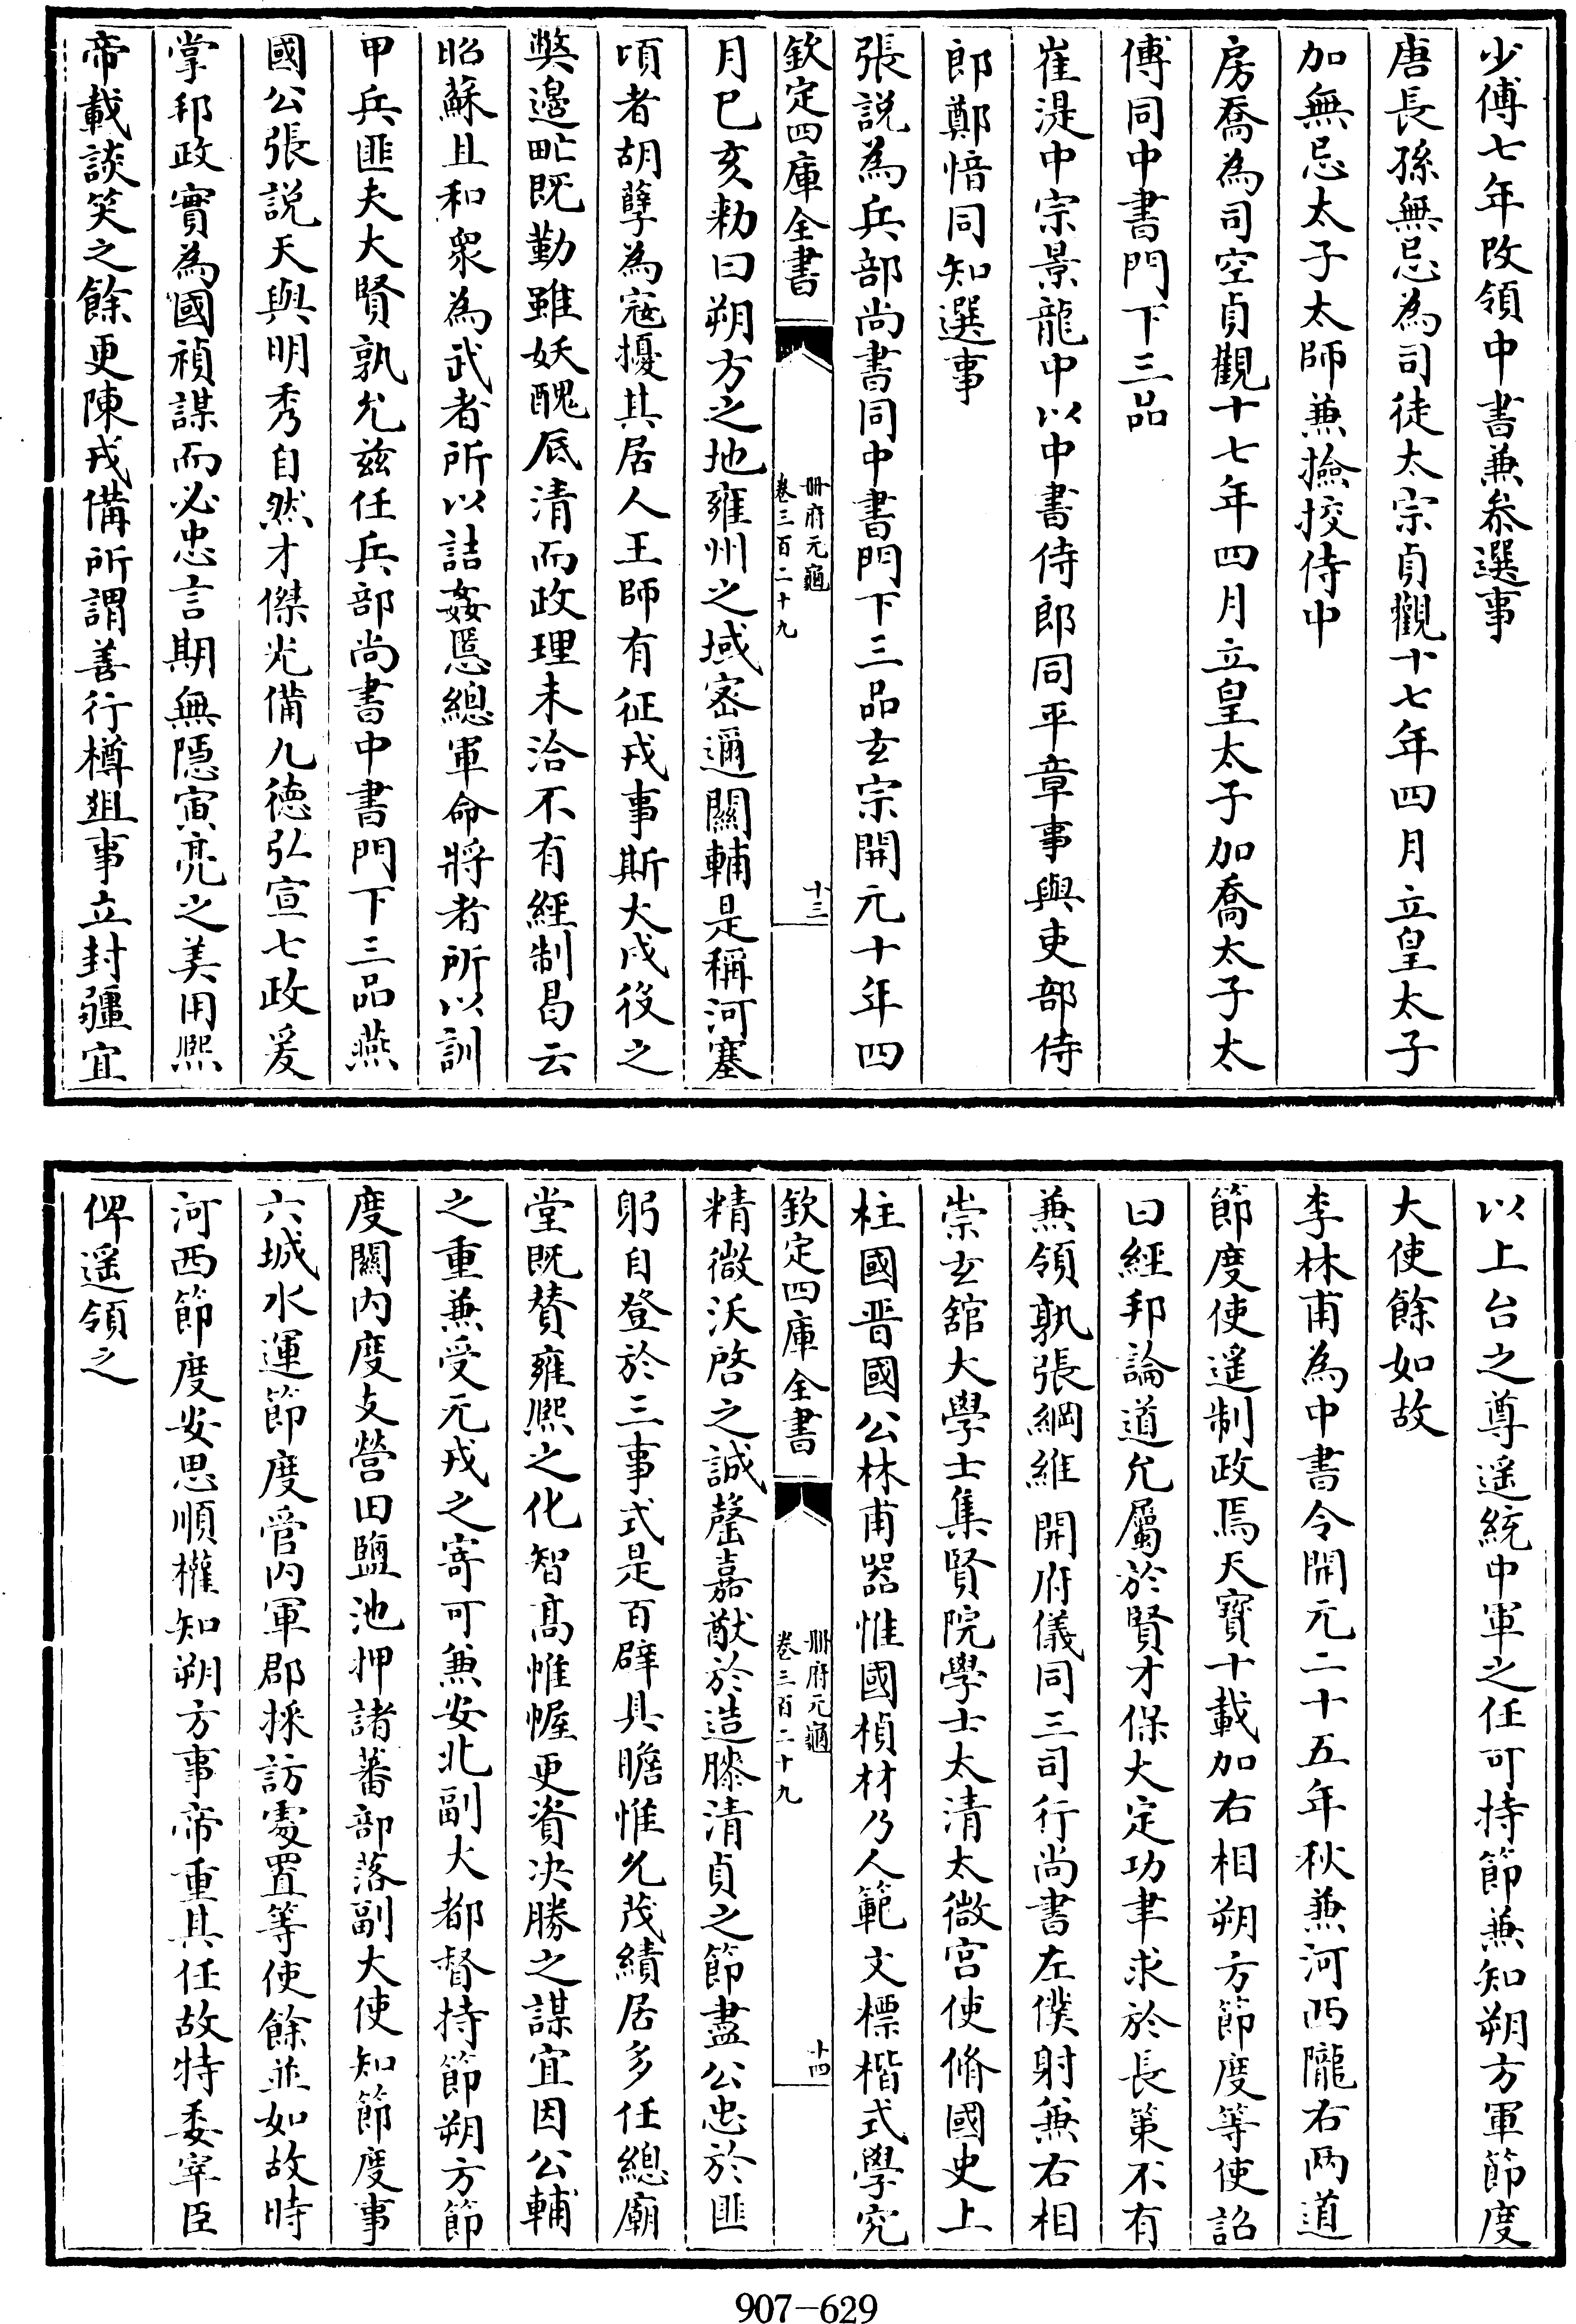 少傅七年改領中書兼叅選事
唐長孫無忌為司徒太宗貞觀十七年四月立皇太子
加無忌太子太師兼撿挍侍中
房喬為司空貞觀十七年四月立皇太子加喬太子太
傅同中書門下三品
崔湜中宗景龍中以中書侍郎同平章事與吏部侍
郎鄭愔同知選事
張説為兵部尚書同中書門下三品玄宗開元十年四
欽定四庫全書
冊府元龜
卷三百二十九
十三
月巳亥勅曰朔方之地雍州之域密邇關輔是稱河塞
頃者胡孽為寇擾其居人王師有征戎事斯大戍役之
獘邉甿既勤雖妖醜底清而政理未洽不有經制曷云
昭蘇且和衆為武者所以詰姦慝總軍命將者所以訓
甲兵匪夫大賢孰允兹任兵部尚書中書門下三品燕
國公張説天與明秀自然才傑光備九德弘宣七政爰
掌邦政實為國禎謀而必忠言期無隱寅亮之美用熙
帝載談笑之餘更陳戎備所謂善行樽俎事立封疆宜
以上台之尊遥統中軍之任可持節兼知朔方軍節度
大使餘如故
李林甫為中書令開元二十五年秋兼河西隴右两道
節度使遥制政焉天寶十載加右相朔方節度等使詔
曰經邦論道允屬於賢才保大定功聿求於長策不有
兼領孰張綱維開府儀同三司行尚書左僕射兼右相
崇玄舘大學士集賢院學士太清太微宫使脩國史上
柱國晋國公林甫器惟國楨材乃人範文標楷式學究
欽定四庫全書
冊府元龜
卷三百二十九
十四
精微沃啓之誠罄嘉猷於造膝清貞之節盡公忠於匪
躬自登於三事式是百辟具瞻惟允茂績居多任總廟
堂既賛雍熙之化智髙帷幄更資决勝之謀宜因公輔
之重兼受元戎之寄可兼安北副大都督持節朔方節
度關内度支營田鹽池押諸蕃部落副大使知節度事
六城水運節度管内軍郡採訪處置等使餘並如故時
河西節度安思順權知朔方事帝重其任故特委宰臣
俾遥領之
907-629